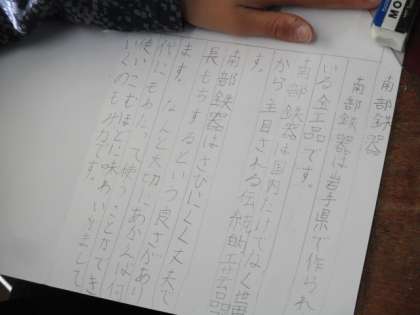 南部鉄器
南部鉄器は岩手県で作られ
いる金工品です。
南部鉄器は国内だけでなく世
から注目される伝統的工芸品
す。
南部鉄器はさびにくく丈夫で
長もちするという良さがあり
ます。なんと大切に
代にもわたって使うことができ
使いこむほどに味わいがまして
いくのもみ力です。
MONO